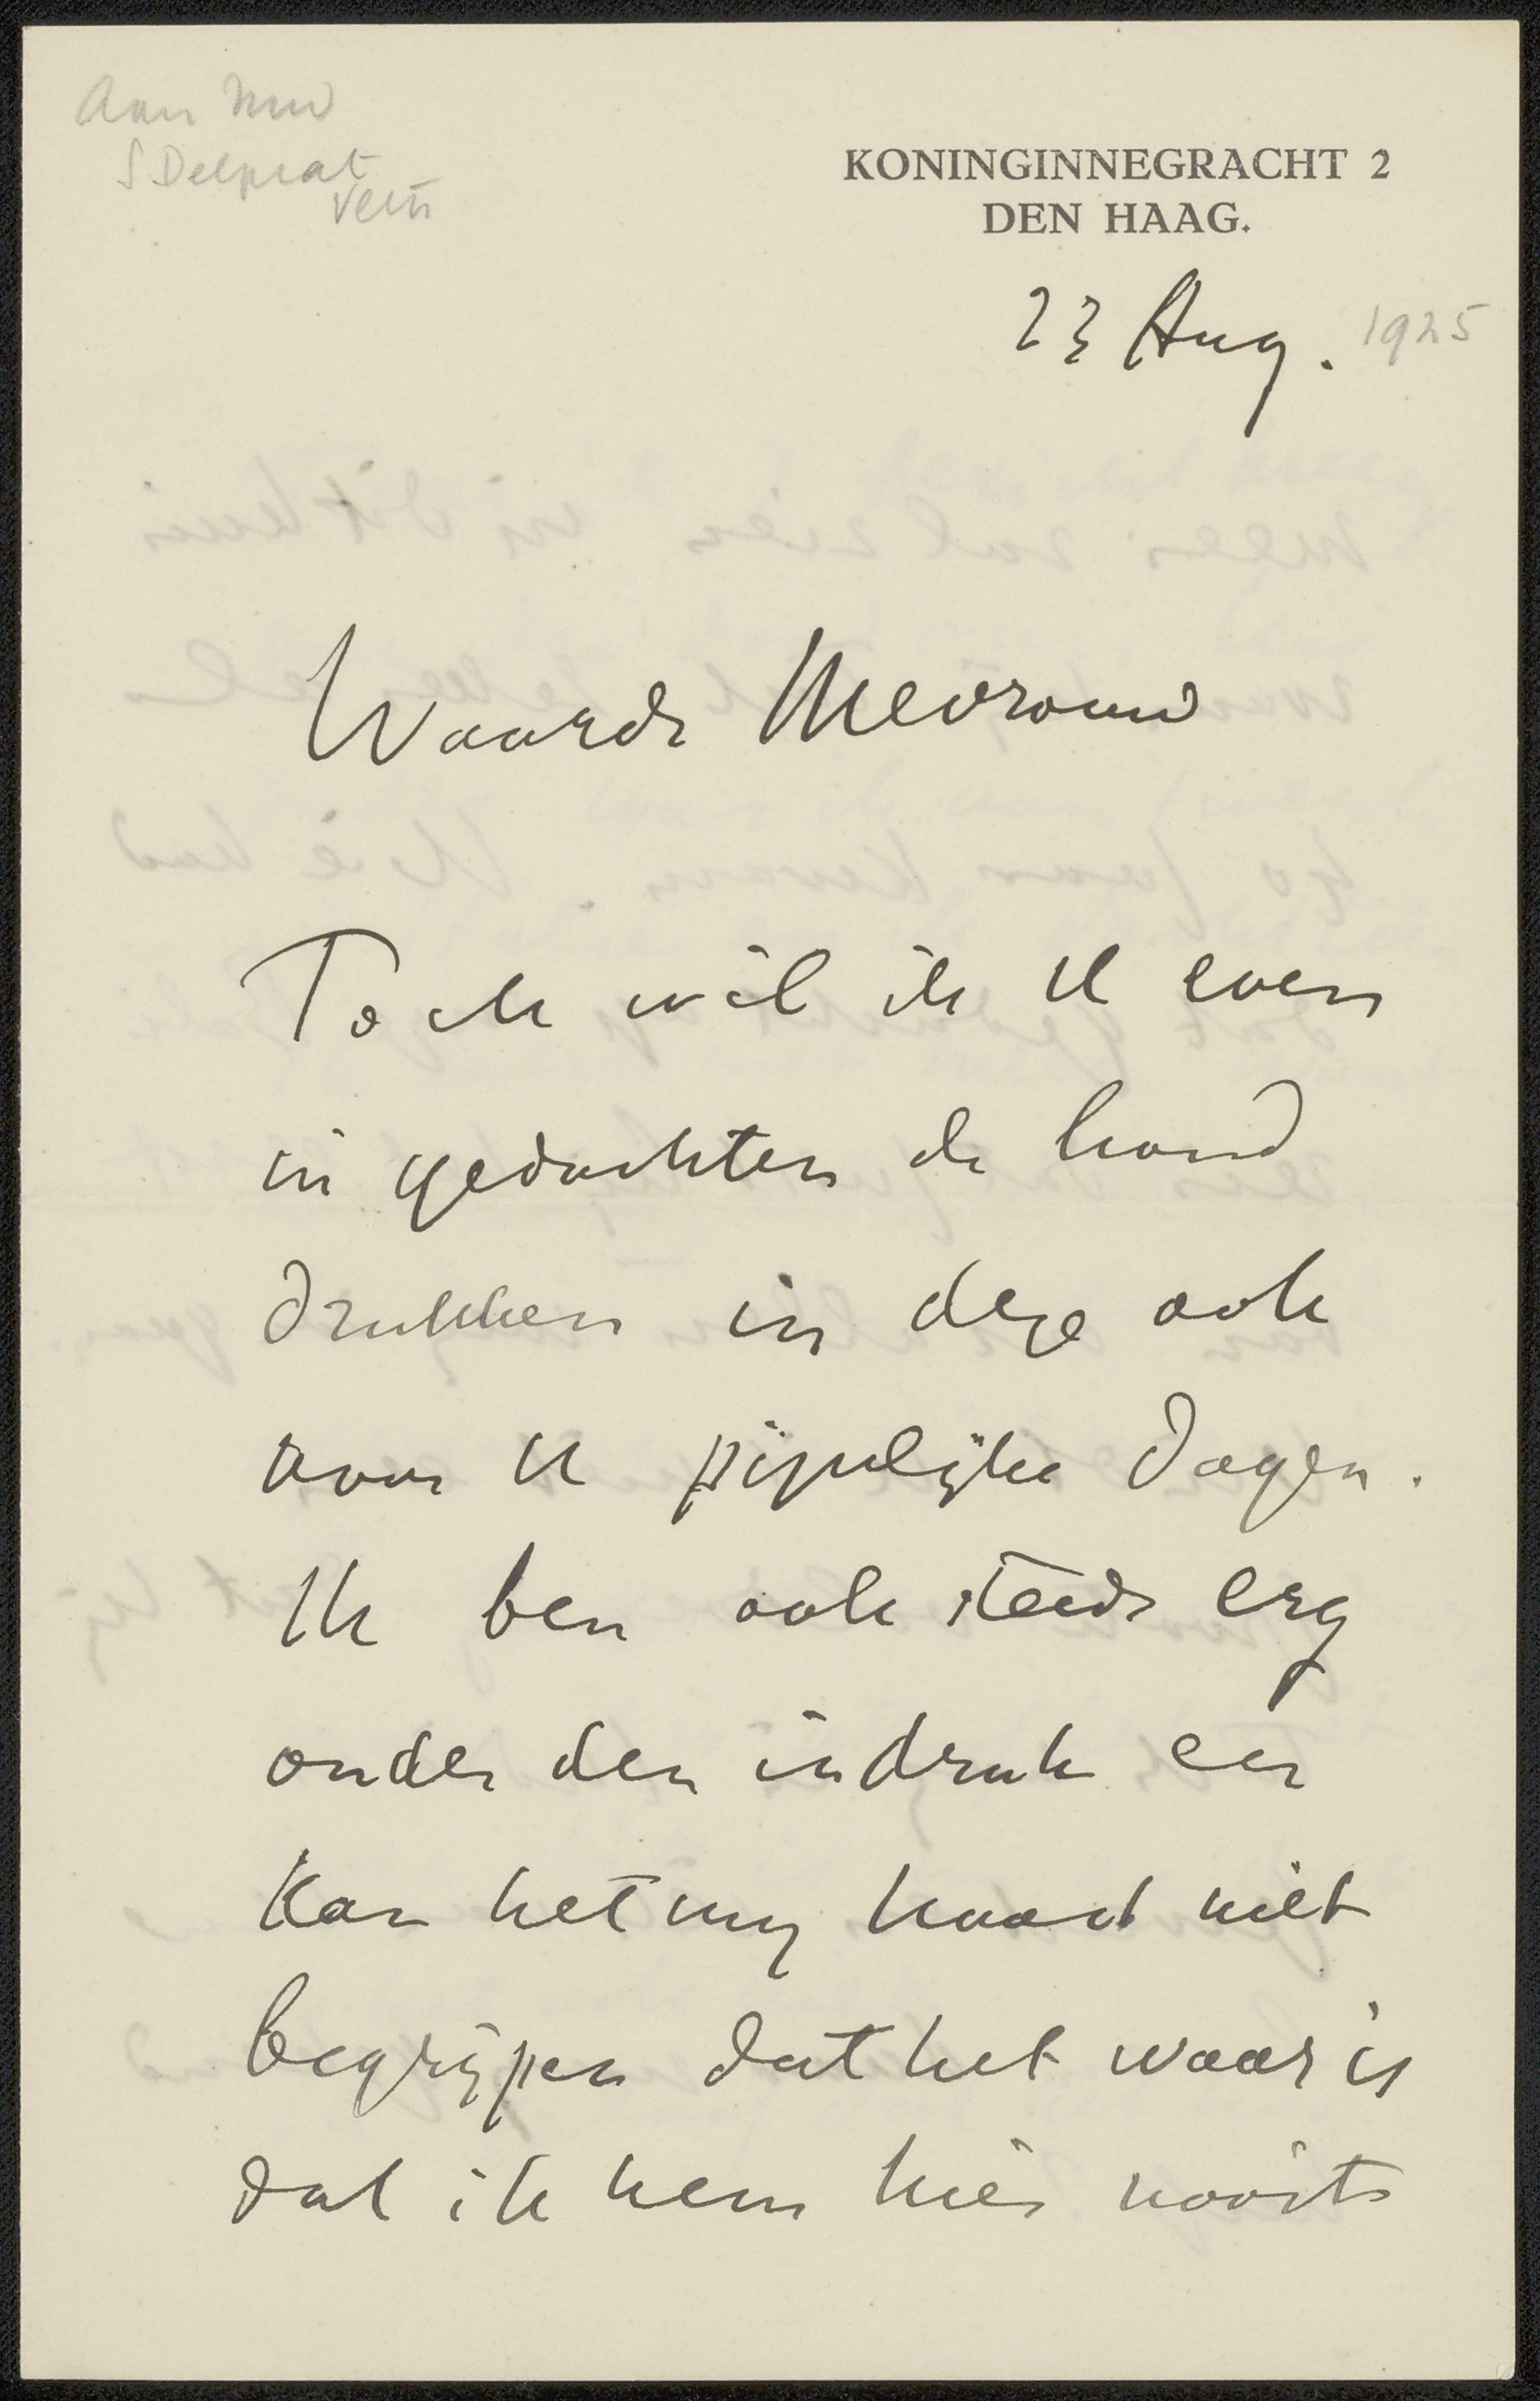 Aan Mevr
S Delprat
Veth
KONINGINNEGRACHT 2
DEN HAAG.
23 Aug. 1925
Waarde Mevrouw
Toch wil ik U even
in gedachten de hand
drukken in deze ook
voor U pijnlijke dagen.
Ik ben ook steeds erg
onder den indruk en
kan het my haast niet
begrijpen dat het waar is
dat ik hem hier nooit